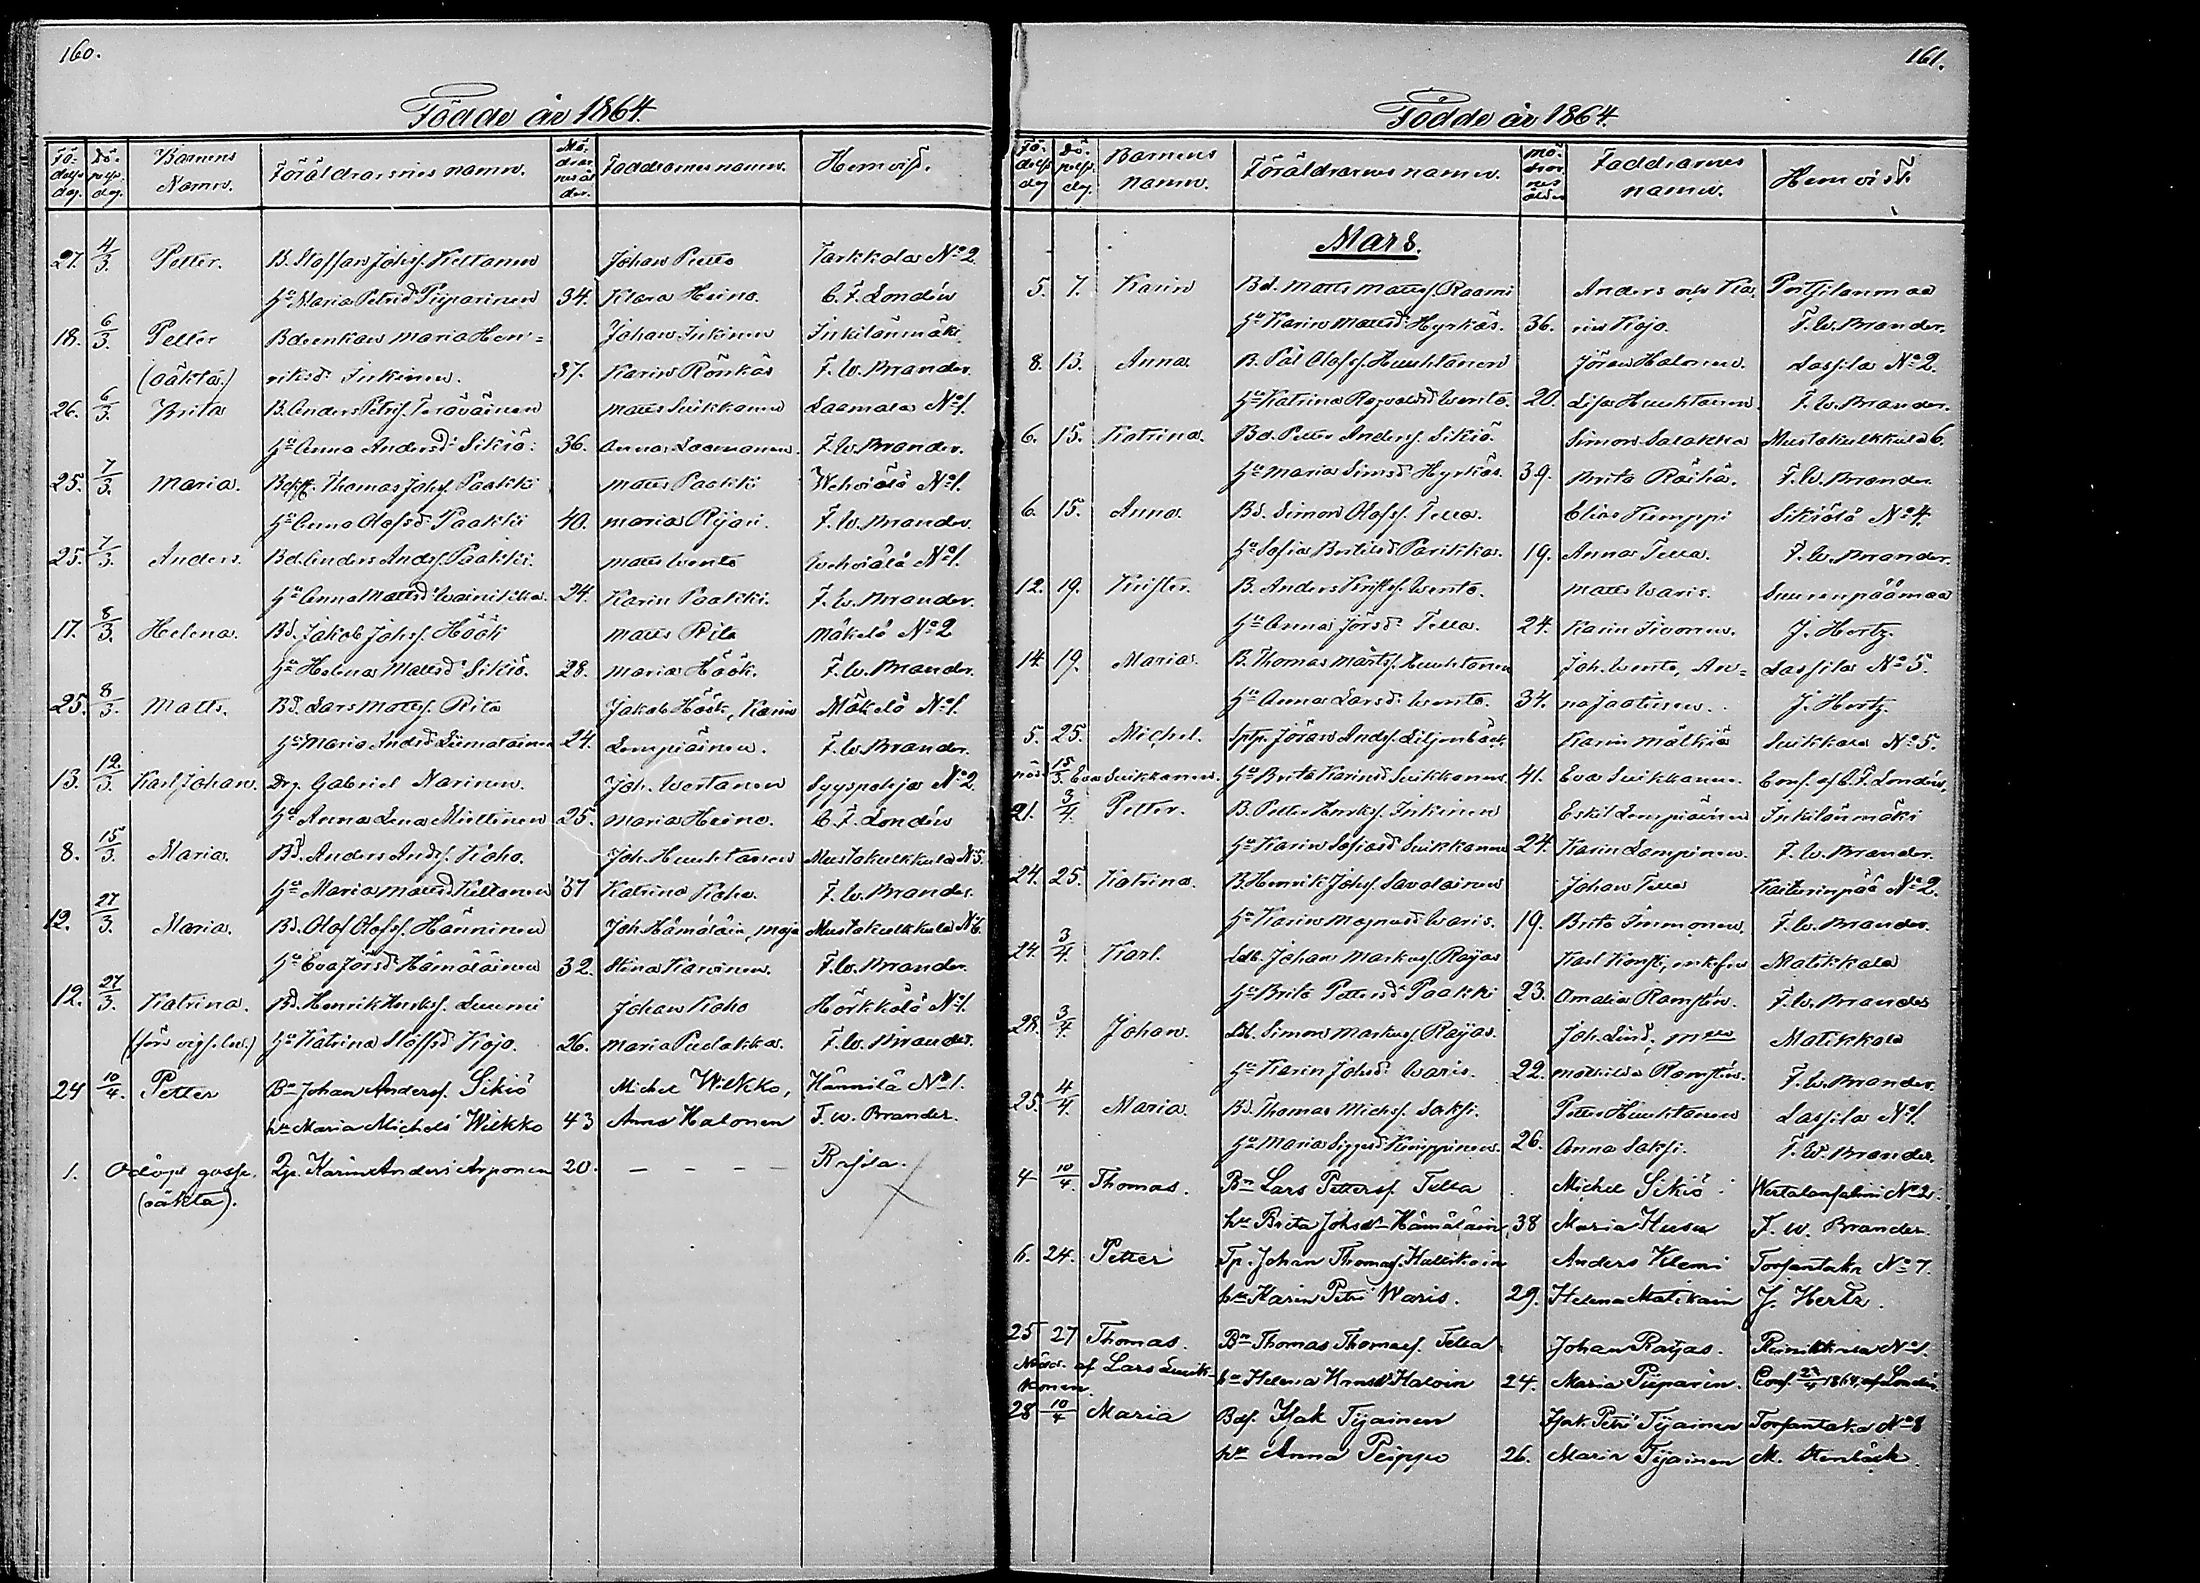 160.
Födde år 1864.
Fö-
delse
dag.
Dö-
pelse
dag.
Barnens
Namn.
Föräldrarnes namn.
Mö-
drar
nes ål
der.
Faddrarnes namn.
Hemvist.
27. 4/3. Petter. B. Staffan Johsf. Kettanen Johan Putto Tarkkola No 2.
Ho Maria Petrid. Piiparinen 34. Klara Heino. C. F. Londén
18. 6/3. Petter Bdrenkan Maria Hen= Johan Inkinen Inkilänmäki
(oäkta.) riksd. Inkinen. 37. Karin Rönkäs F. W. Brander.
26. 6/3. Brita B. Anders Petrisf. Teräväinen Matts Suikkanen Laamala No 1.
Ho Anna Andersd. Sikiö. 36. Anna Laamanen. F. W. Brander.
25. 7/3. Maria. Thomas Johsf. Paakki Matts Paakki Wehviälä No 1.
Ho Anna Olofsd. Paakki 40. Maria Pyari. F. W. Brander.
25. 7/3. Anders. Bd. Anders Andsf. Paakki. Matts Wento Wehviälä No 1.
Ho Anna Mattsd. Wainikka. 24. Karin Paakki. F. W. Brander.
17. 8/3. Helena. Bd. Jakob Johsf. Höök Matts Rita Mäkelä No 2
Ho Helena Mattsd. Sikiö. 28. Maria Höök. F. W. Brander.
25. 8/3. Matts. Bd. Lars Mattsf. Rita Jakob Höök, Karin Mäkelä No 1.
Ho Maria Andsd. Liimatainen 24. Lempiäinen. F. W. Brander.
13. 12/3. Karl Johan. Drg. Gabriel Narinen. Joh. Wertanen Syyspohja No 2
Ho Anna Lena Miettinen 25. Maria Heino. C. F. Londén
8. 15/3. Maria. Bd. Anders Andsf. Koho. Joh. Huuhtanen Mustakulkkula N 5.
Ho Maria Mattsd. Kettanen 37 Katrina Koho. F. W. Brander.
12. 27/3. Maria. Bd. Olof Olofsf. Hänninen Joh. Hämäläin, Maja Mustakulkkula N 6.
Ho Eva Jörsd. Hämäläinen 32. Stina Karvinen. F. W. Brander.
12. 27/3. Katrina. Bd. Henrik Henrksf. Luumi Johan Koho Hörkkälä No 1.
(före vigseln.) Ho Katrina Staffsd. Kojo. 26. Maria Pudakka. F. W. Brander.
24 10/4. Petter Bn Johan Andersf. Sikiö Michel Wilkko, Hännilä No 1.
hu Maria Michelsd. Wilkko 43 Anna Halonen F. W. Brander.
1. Odöpt gosse. Karin Anders Arponen 20. – – – –
(oäkta).
161.
Födde år 1864.
Fö-
delse
dag
Dö-
pelse
dag.
Barnens
namn.
Föräldrarnes namn.
Mö-
drar
nes
ålder
Faddrarnes
namn.
Hemvist.
Mars.
5. 7. Karin Bd. Matts Mattsf. Raami Anders och Ka-
Ho Karin Mattsd. Hyrkäs. 36. rin Kojo. F. W. Brander.
8. 13. Anna. B. Pål Olofsf. Huuhtanen Jöran Halonen. Lassila No 2.
Ho Katrina Wento. 20. Lisa Huuhtanen. F. W. Brander.
6. 15. Katrina. Bd. Petter Andersf. Sikiö. Simon Salakka Mustakulkkula 6.
Ho Maria Simsd. Hyrkäs. 39. Brita Räihä. F. W. Brander
6. 15. Anna. Bd. Simon Olofsf. Tella. Elias Temppi Sikiölä No 4.
Ho Sofia Bertilsd. Parikka. 19. Anna Tella. F. W. Brander.
12. 19. Krister. B. Anders Kristersf. Wento. Matts Waris. Suurenpäämaa
Ho Anna Jörsd. Tella. 24. Karin Sivonen. J. Hertz.
14 19. Maria. B. Thomas Mårtsf. Huuhtanen Joh. Wento, An= Lassila No 5.
Ho Anna Larsd. Wento. 34. na Jaatinen. J. Hertz.
5. 25. Michel. Jöran Andsf. Liljenbäck. Karin Mälkiä Suikkala No 5.
nöd. 15/3. Eva Suikkanen. Ho Brita Karinsd. Suikkanen. 41. Eva Suikkanen. Conf. af C. F. Londén.
21. 3/4. Petter. B. Petter Henrksf. Inkinen Eskil Lempiäinen Inkilänmäki
Ho Karin Sofiasd. Suikkanen 24. Karin Lampinen. F. W. Brander.
24. 25. Katrina. B. Henrik Johsf. Savolainen Johan Tella Kaiturinpää No 2.
Ho Karin Magnusd. Waris. 19. Brita Immonen. F. W. Brander.
24. 3/4. Karl. Ldb. Johan Markusf. Rayas Karl Konsti, enkfru Matikkala
Ho Brita Pettersd. Paakki 23. Amalia Ramstén. F. W. Brander
28. 3/4. Johan. Ldb. Simon Markusf. Rayas. Joh. Lind, Matikkala
Ho Karin Johsd. Waris. 22. Mathilda Ramstén. F. W. Brander.
25. 4/4. Maria. Bd. Thomas Michsf. Saksi. Petter Huuhtanen Lassila No 1.
Ho Maria Sigfrsd. Kuippinen. 26. Anna Saksi. F. W. Brander.
4 10/4. Thomas. Bn Lars Pettersf. Tella Michel Sikiö No 2.
hu Brita Johsdr Hämäläin, 38 Maria Husu F. W. Brander.
6. 24. Petter Tp. Johan Thomasf. Hallikain Anders Klemi Torsantaka No 7.
hu Karin Petri Waris. 29. Helena Matikain J. Hertz.
25 27 Thomas. Bn Thomas Thomasf. Tella Johan Rayas. Reinikkala No 1.
Nöd. af Lars Suik- hu Helena Hrnsdr Haloin 24. Maria Piiparin. Conf. 27/4 1864, af Londén.
konen.
28 10/4 Maria Isak Tijainen Isak Petri Tijainen Torsantaka No 8
hu Anna Peippo 26. Maria Tijainen M. Stenbäck.